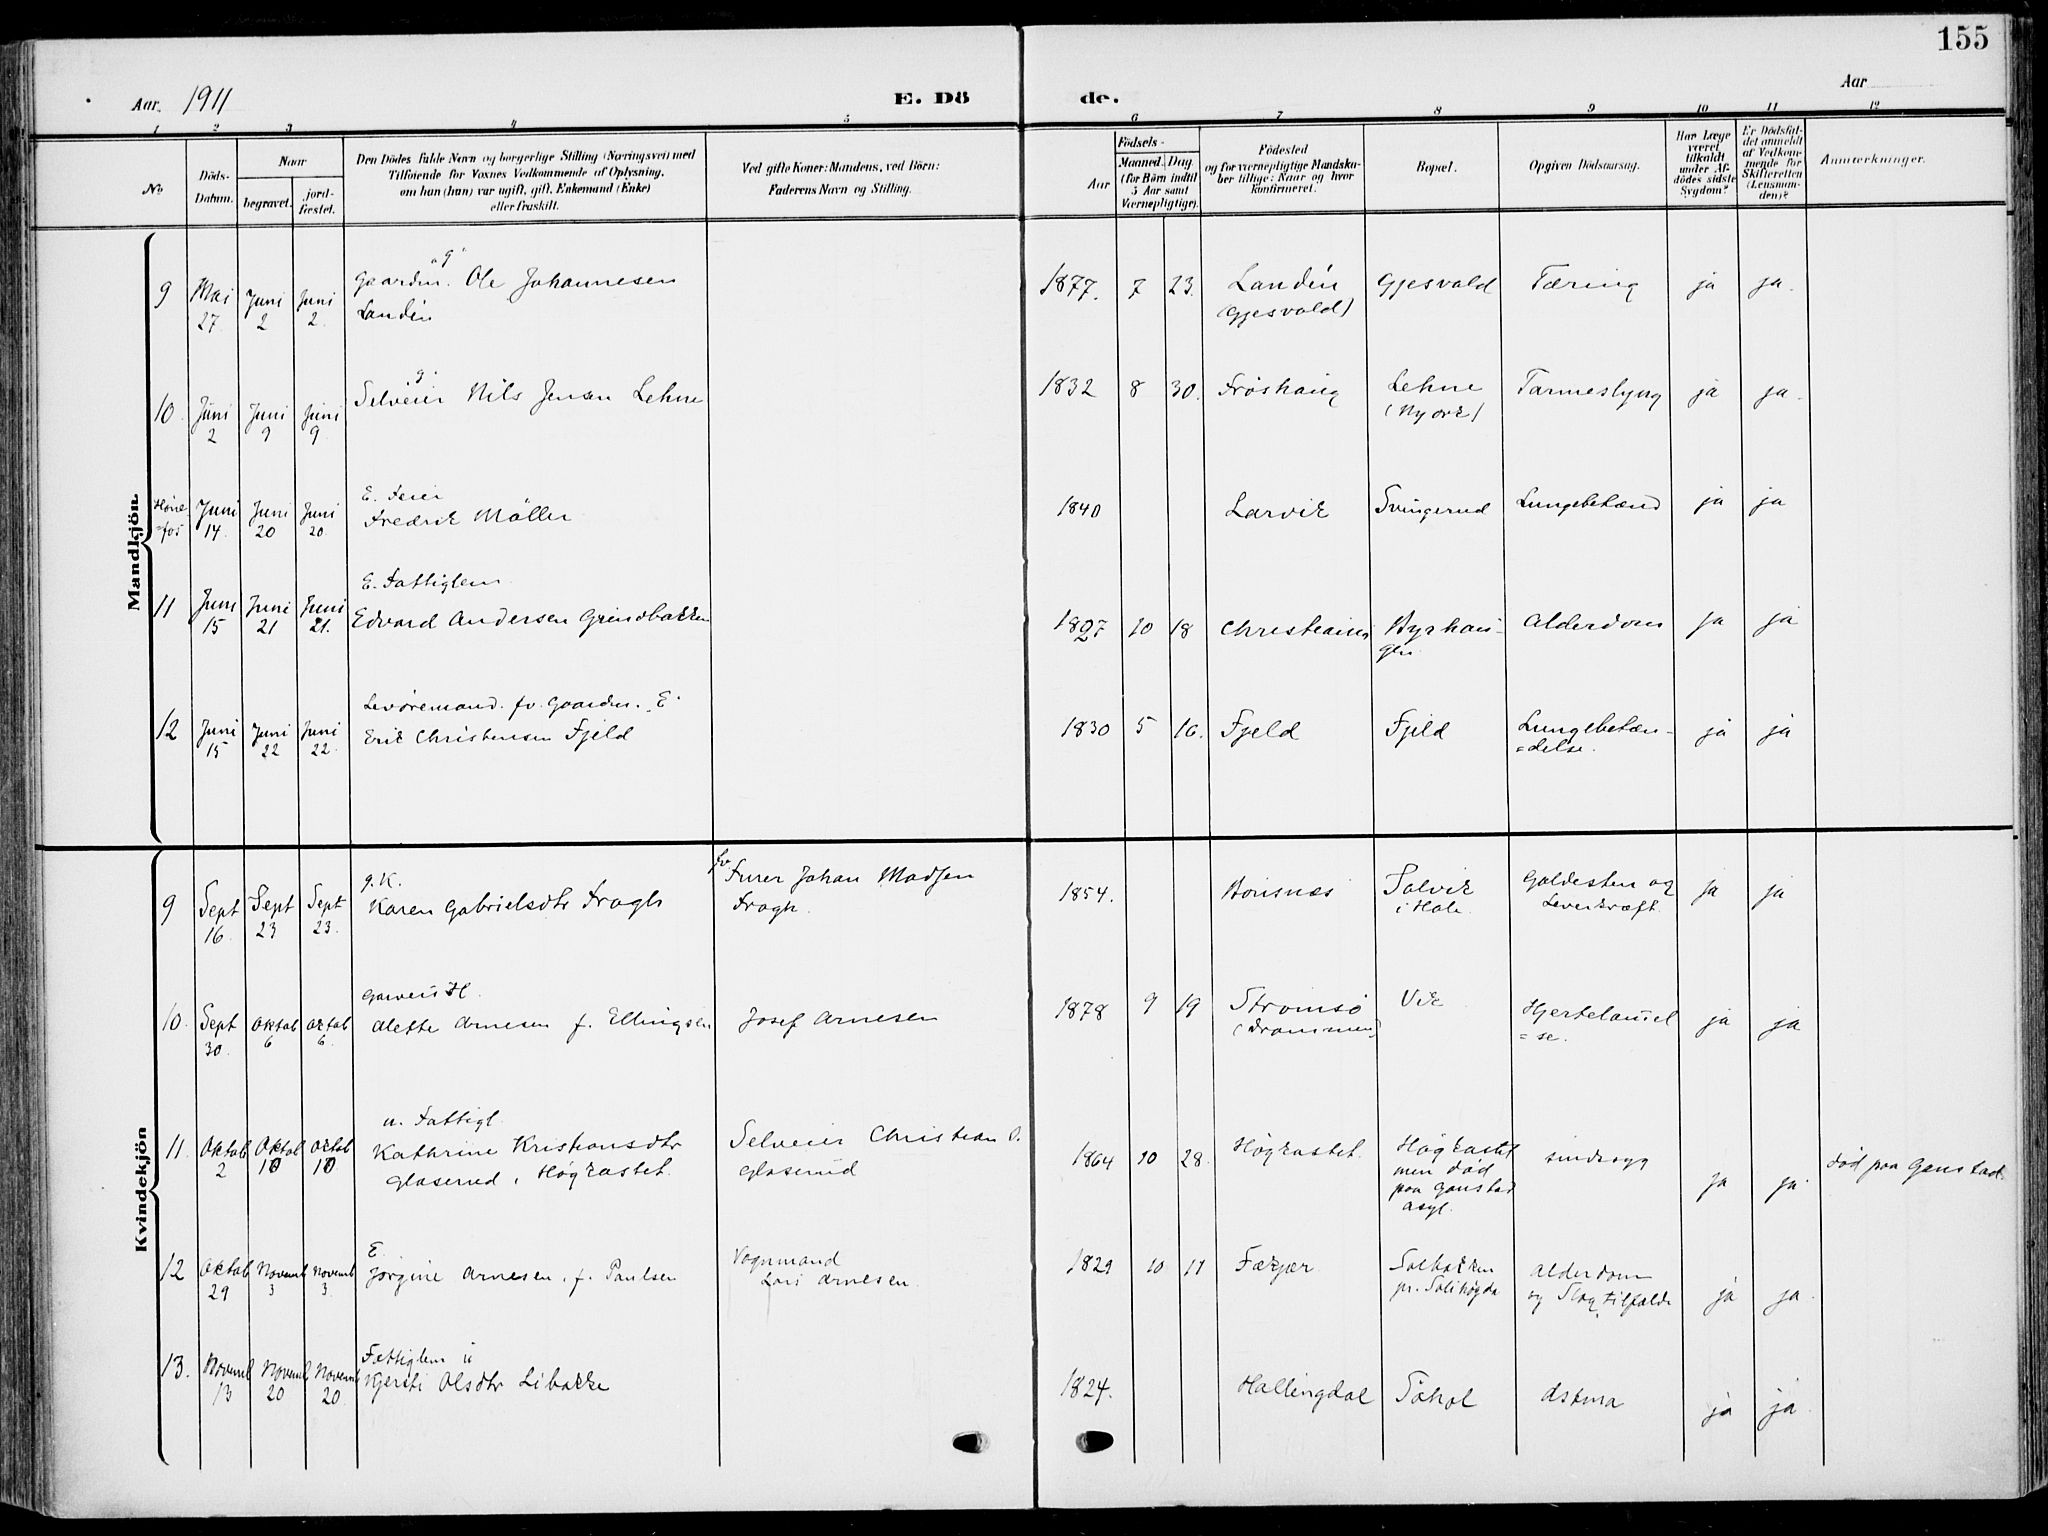 155
Aar 1911 E. Dö de. Aar
1 2 3 4 5 6 7 8 9 10 11 12
No. Döds-Datum. Naar begravet. jord-fæstet. Den Dödes fulde Navn og borgerlige Stilling (Næringsvei) med Tilföiende for Voxnes Vedkommende af Oplysning, om han (hun) var ugift, gift, Enkemand (Enke) eller fraskilt. Ved gifte Koner: Mandens, ved Börn: Faderens Navn og Stilling. Födsels- Aar Maaned. Dag. (for Börn indtil 5 Aar samt Værnepligtige). Födested og for værnepligtige Mandskaber tillige: Naar og hvor konfirmeret. Bopæl. Opgiven Dödsaarsag. Har Læge været tilkaldt under Afdödes sidste Sygdom? Er Dödsfaldet anmeldt af Vedkommende for Skifteretten (Lensmanden)? Anmærkninger.
Mandkjön
9 Mai 27 Juni 2 Juni 2. Gaardm. "g" Ole Johannesen Landén 1877. 7 23. Landén (Gjesvold) Gjesvold Tæring ja ja.
10. Juni 2 Juni 9 Juni 9. Selveier g. Nils Jensen Lehne 1832 8 30. Fröshaug Lehne (Nyork) Tarmeslyng ja ja.
Hönefos Juni 14. Juni 20 Juni 20. E. Feier Fredrik Möller 1840 Larvik Svingerud Lungebetænd ja ja
11 Juni 15 Juni 21 Juni 21. E. Fattiglem Edvard Andersen Grindbakken 1827 10 18 Christiania Alderdom ja ja
12 Juni 15 Juni 22 Juni 22. fv. Gaardm. E. Erik Christensen Fjeld 1830 5 16. Fjeld Fjeld Lungebetæn=delse. ja ja
Kvindekjön
9 Sept 16. Sept 23 Sept 23. g. K. Karen Gabrielsdtr Frogh fv Furer Johan Madsen Frogh. 1854. Bönsnæs Solvik i Hole. Galdesten og Leverkræft. ja ja
10. Sept 30. Oktob 6 Oktob 6. Alette Arnesen f. Ellingsen Josef Arnesen 1878 9 19 Strömsö (Drammen) Vik Hjertelammel=se. ja ja
11. Oktob 2 Oktob 10 Oktob 10. u. Fattigl. Kathrine Kristiansdtr Glaserud, Högkastet. Selveier Christian O. Glaserud 1864 10 28. Högkastet. Högkastet men död paa Gaustad asyl. sindssyg ja ja. död paa Gaustad.
12 Oktob 29 Novemb 3 Novemb 3. E. Jörgine Arnesen, f. Paulsen Vognmand Lars Arnesen. 1829 10 11 Fækjær Solbakken pr. Sollihögda Alderdom og Slagtilfælde ja ja.
13. Novemb 13 Novemb 20 Novemb 20. Fattiglem u Kjersti Olsdtr Libakke 1824. Hallingdal Söhol Astma ja ja.